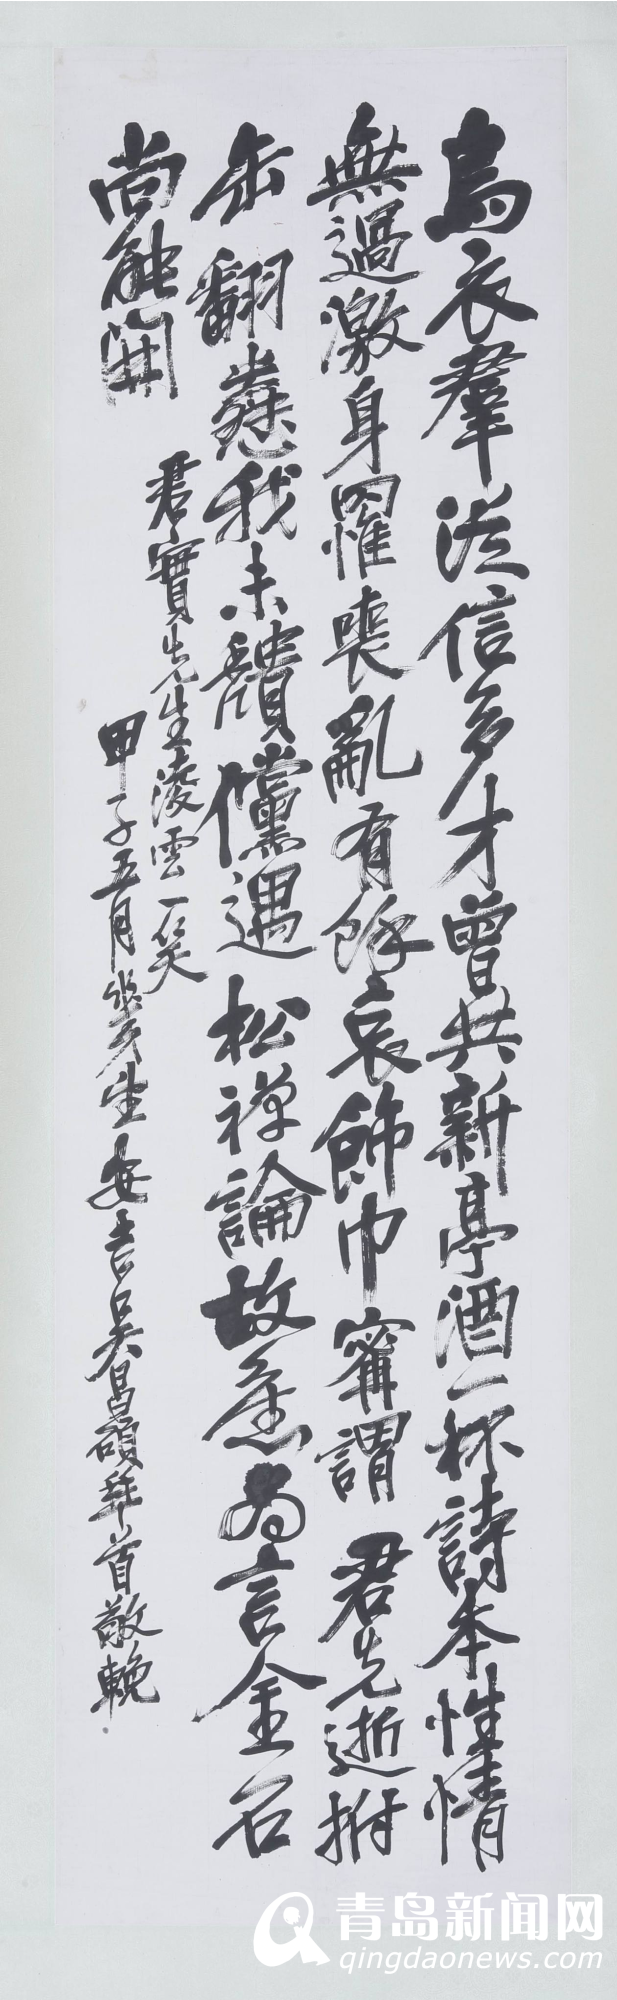 烏衣羣從信多才曾共新亭酒一杯詩本性情
無過激身罹喪亂有餘哀飾巾甯謂君先逝拊
缶翻憗我未隤儻遇松禪論故舊為言金石
尚能開
君實先生凌雲一笑
甲子五月癸多生安吉吳昌碩拜首敬輓
青岛新闻网
qingdaonews.com